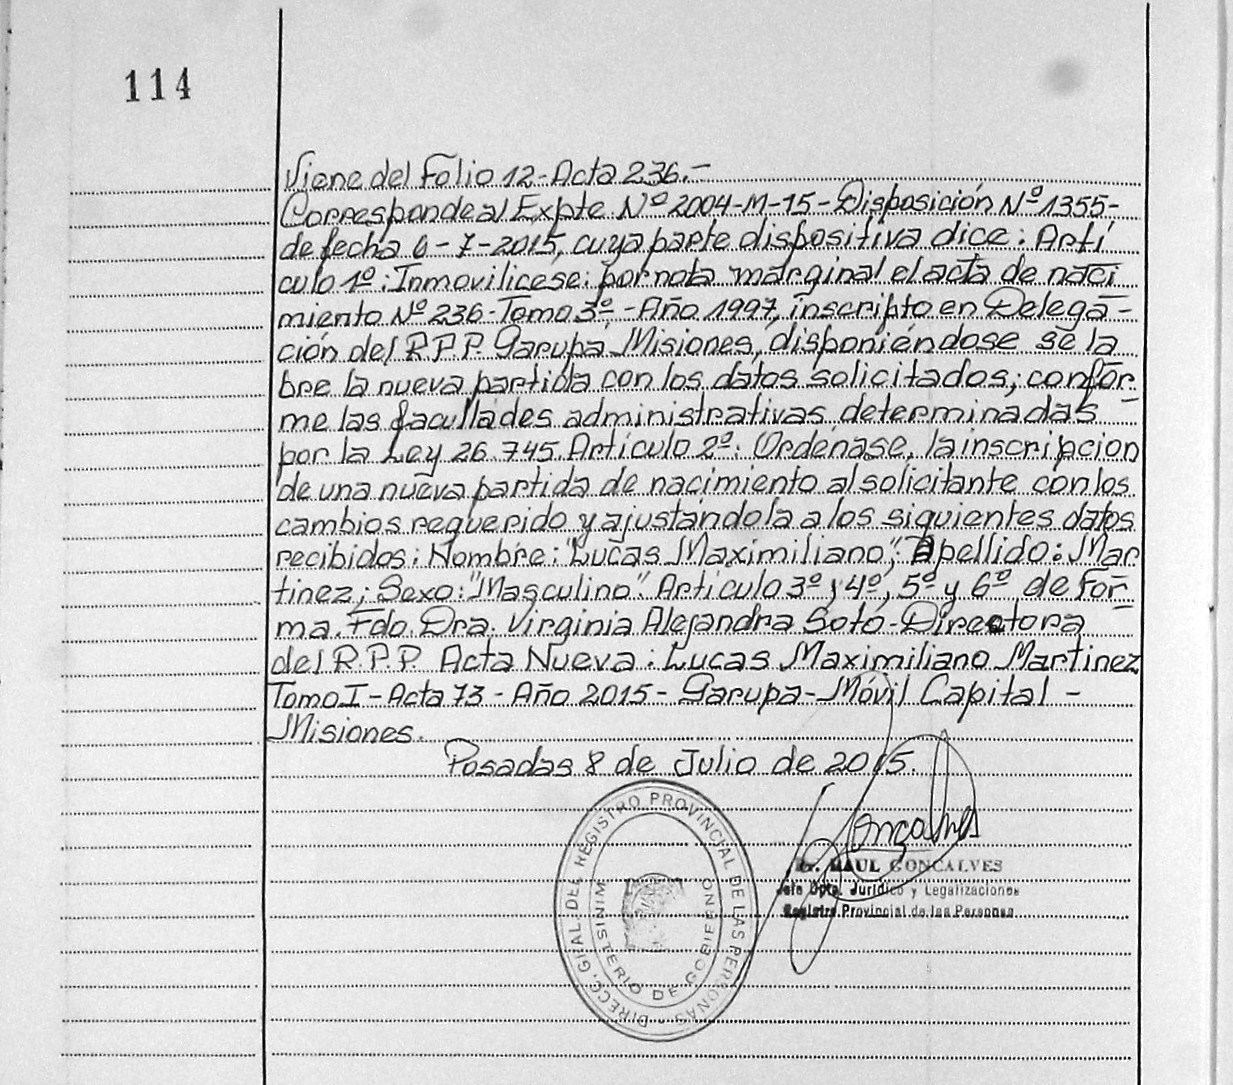 114
Viene del Folio 12-Acta 236.-
Corresponde al Expte. Nº 2004-M-15-Disposición Nº 1355-
de fecha 6-7-2015, cuya parte dispositiva dice: Artí
culo 1º: Inmovilicese: por nota marginal el acta de naci
miento Nº 236-Tomo 3º-Año 1997, inscripto en Delega-
ción del R.P.P. Garupa Misiones, disponiéndose se la
bre la nueva partida con los datos solicitados; confor-
me las facultades administrativas determinadas
por la Ley 26.745. Artículo 2º: Ordénase, la inscripcion
de una nueva partida de nacimiento al solicitante con los
cambios requerido y ajustandola a los siguientes datos
recibidos: Nombre: "Lucas Maximiliano"; Apellido: Mar
tinez; Sexo: "Masculino". Artículo 3º y 4º, 5º y 6º de For-
ma. Fdo. Dra. Virginia Alejandra Soto-Directora
del R.P.P. Acta Nueva: Lucas Maximiliano Martinez
Tomo I-Acta 73-Año 2015-Garupa-Móvil Capital-
Misiones.
Posadas 8 de Julio de 2015.
Goncalves
Dr. RAUL GONCALVES
Jefe Dpto. Jurídico y Legalizaciones
Registro Provincial de las Personas
DIRECC. GRAL. DEL REGISTRO PROVINCIAL DE LAS PERSONAS
MINISTERIO DE GOBIERNO